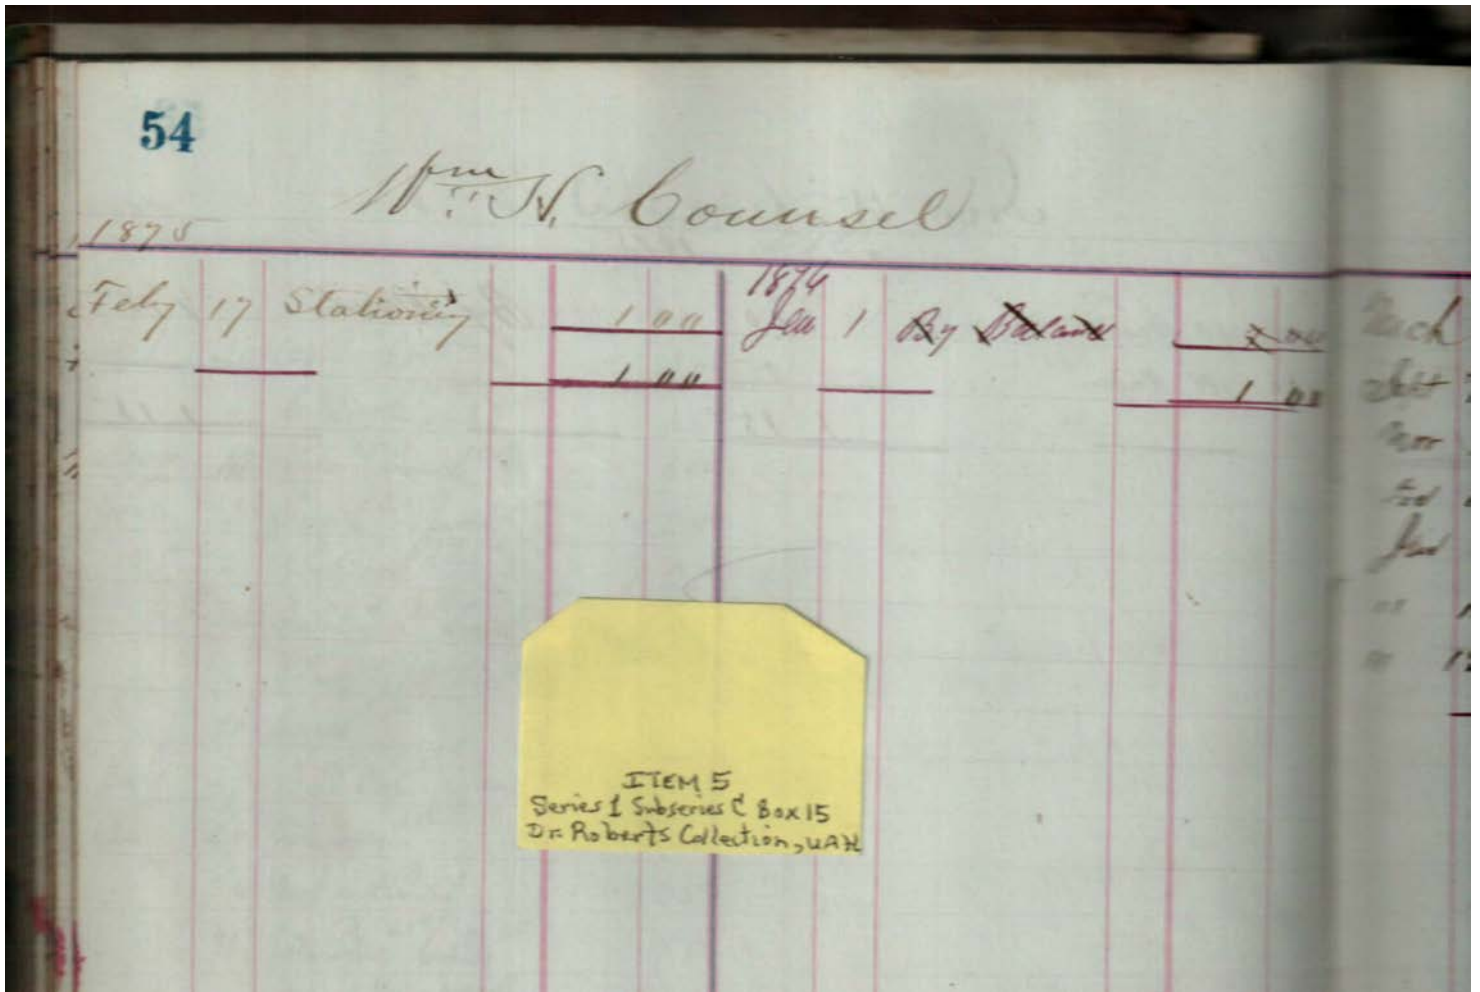 54
Wm H. Counsel
1875
Feby 17 Stationery 1 00
1 00
1876
Jan 1 By Balance 1 00
1 00
Mch
Sept
Nov
Jan
" 
" 12
ITEM 5
Series 1 Subseries C Box 15
Dr. Roberts Collection, UAH